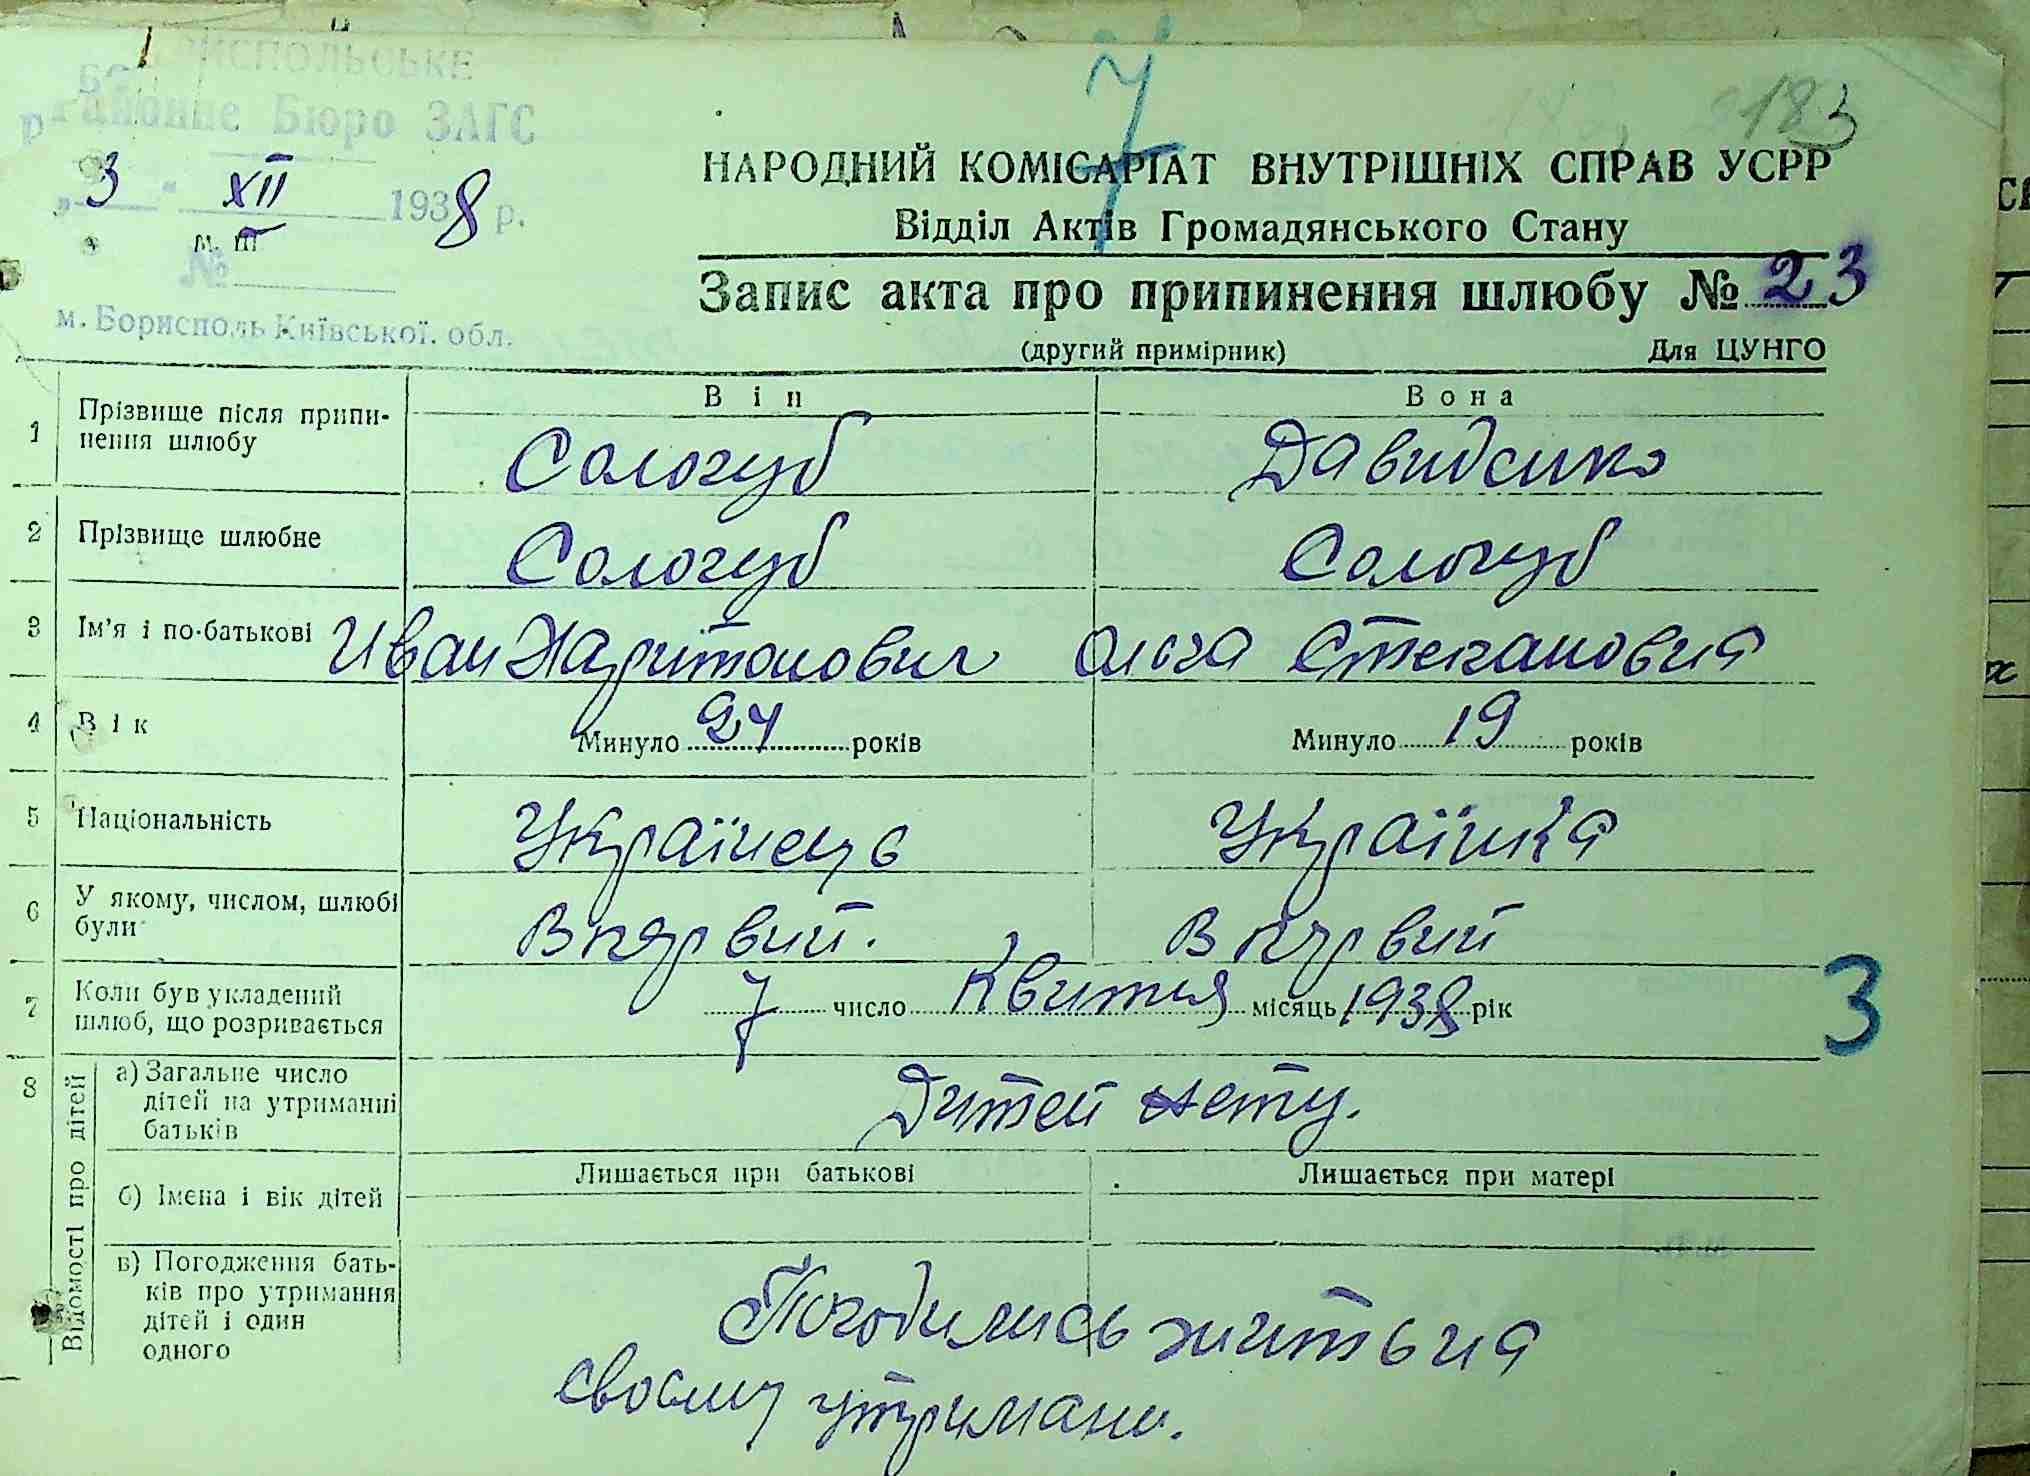 БОРИСПОЛЬСЬКЕ
районне Бюро ЗАГС
„3" XII 1938 р.
м. III
№
м. Борисполь Київської. обл.
7
183
НАРОДНИЙ КОМІСАРІАТ ВНУТРІШНІХ СПРАВ УСРР
Відділ Актів Громадянського Стану
Запис акта про припинення шлюбу № 23
(другий примірник) Для ЦУНГО
Він Вона
1 Прізвище після припи-
нення шлюбу
Сологуб Давиденко
2 Прізвище шлюбне Сологуб Сологуб
3 Ім'я і по-батькові Иван Харитонович Ольга Степановна
4 Вік Минуло 24 років Минуло 19 років
5 Національність Українець Українка
6 У якому, числом, шлюбі
були
Впервий. Впервий
7 Коли був укладений
шлюб, що розривається
7 число Квитня місяць 1938 рік
3
8 Відомості про дітей
а) Загальне число
дітей на утриманні
батьків
Дитей нету.
Лишається при батькові Лишається при матері
б) Імена і вік дітей
в) Погодження бать-
ків про утримання
дітей і один
одного
Погодились жить на
своєму утримани.